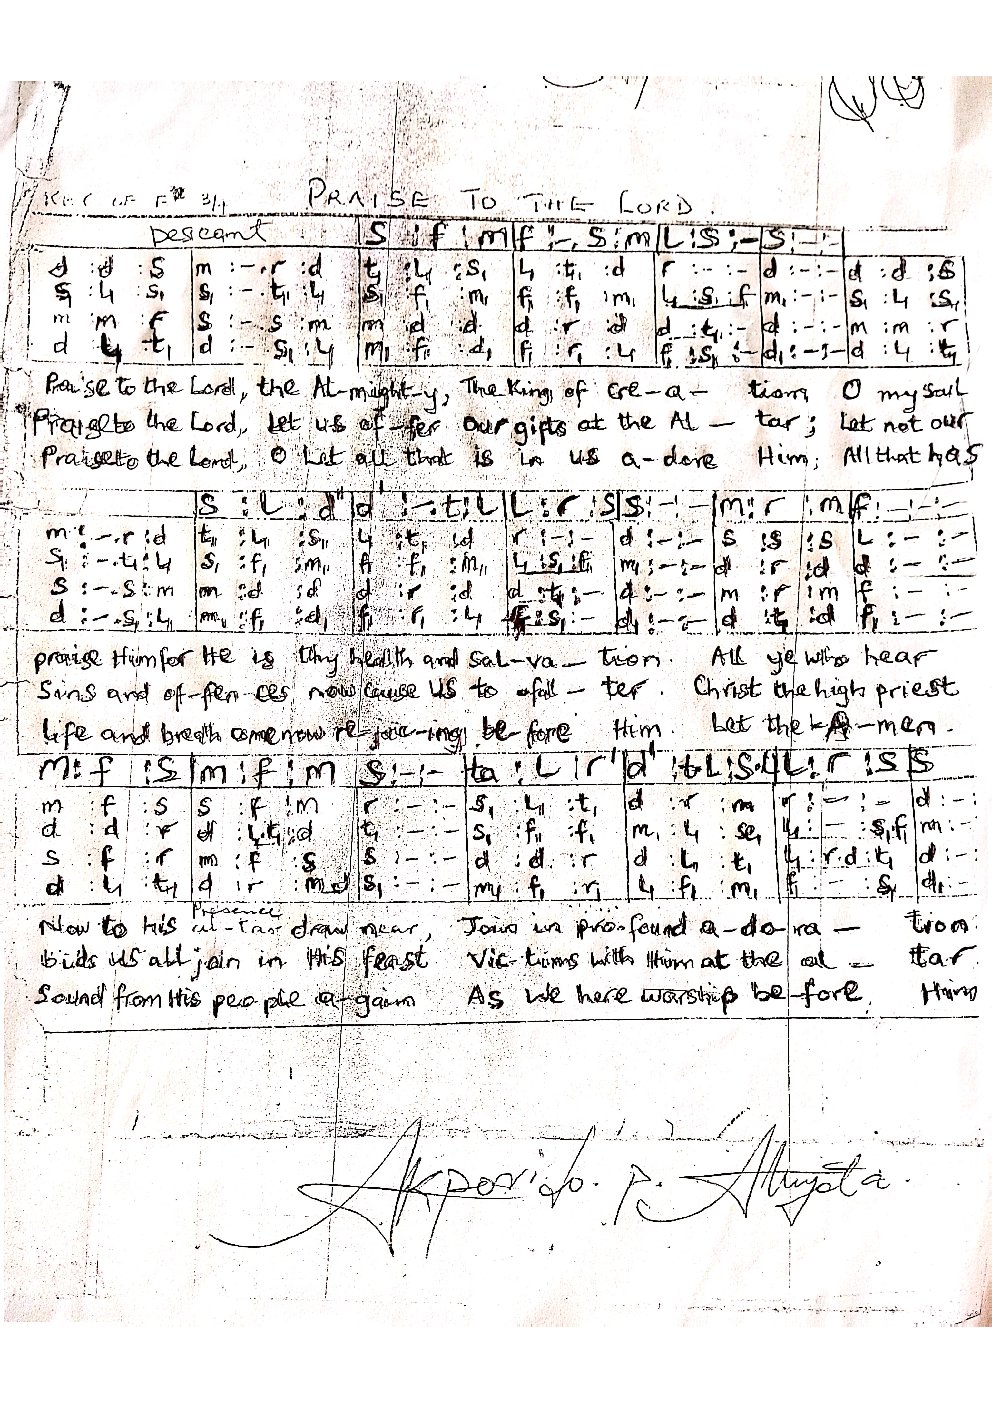 KEY OF F# 3/4 PRAISE TO THE LORD.
Descant S : f : m f :-. S : m L : S :- S :-:-
d : d : S m :-. r : d t₁ : L₁ : S₁ L₁ : t₁ : d r :-:- d :-:- d : d : S
S₁ : L₁ : S₁ S₁ :-. t₁ : L₁ S₁ : f₁ : m₁ f₁ : f₁ : m₁ L₁ : S₁ : f₁ m₁ :-:- S₁ : L₁ : S₁
m : m : r S :-. S : m m : d : d d : r : d d : t₁ :- d :-:- m : m : r
d : L₁ : t₁ d :-. S₁ : L₁ m₁ : f₁ : d₁ f₁ : r₁ : L₁ f₁ : S₁ :- d₁ :-:- d : L₁ : t₁
Praise to the Lord, the Al-might-y, The King, of cre-a- tion, O my soul
Praise to the Lord, Let us of-fer our gifts at the Al - tar; Let not our
Praise to the Lord, O Let all that is in us a-dore Him; All that has
S : L : d' d' :-. t : L L : r : S S :-:- m : r : m f :-:-
m :-. r : d t₁ : L₁ : S₁ L₁ : t₁ : d r :-:- d :-:- S : S : S L :-:-
S₁ :-. t₁ : L₁ S₁ : f₁ : m₁ f₁ : f₁ : m₁ L₁ : S₁ : f₁ m₁ :-:- d : r : d d :-:-
S :-. S : m m : d : d d : r : d d : t₁ :- d :-:- m : r : m f :-:-
d :-. S₁ : L₁ m₁ : f₁ : d₁ f₁ : r₁ : L₁ f₁ : S₁ :- d₁ :-:- d : t₁ : d f₁ :-:-
praise Him for He is thy health and sal-va - tion. All ye who hear
Sins and of-fen ces now cause us to fal - ter. Christ the high priest
life and breath come now re-joic-ing be-fore Him. Let the A-men.
m : f : S m : f : m S :-:- ta : L : r' d' : t L : S L : r : S S
m : f : S S : f : m r :-:- S₁ : L₁ : t₁ d : r : m r :-:- d :-:
d : d : r d : L₁ t₁ : d t₁ :-:- S₁ : f₁ : f₁ m₁ : L₁ : se₁ L₁ :- : S₁ f₁ m₁ :-
S : f : r m : f : S S :-:- d : d : r d : L₁ : t₁ L₁ : r . d : t₁ d :-
d : L₁ : t₁ d : r : m d S₁ :-:- m₁ : f₁ : r₁ L₁ : f₁ : m₁ f₁ :- : S₁ d₁ :-
Presence
Now to His al-tar draw near, Join in pro-found a-do-ra - tion.
bids us all join in His feast Vic-tims with Him at the al - tar.
Sound from His peo ple a-gain As we here worship be-fore Him